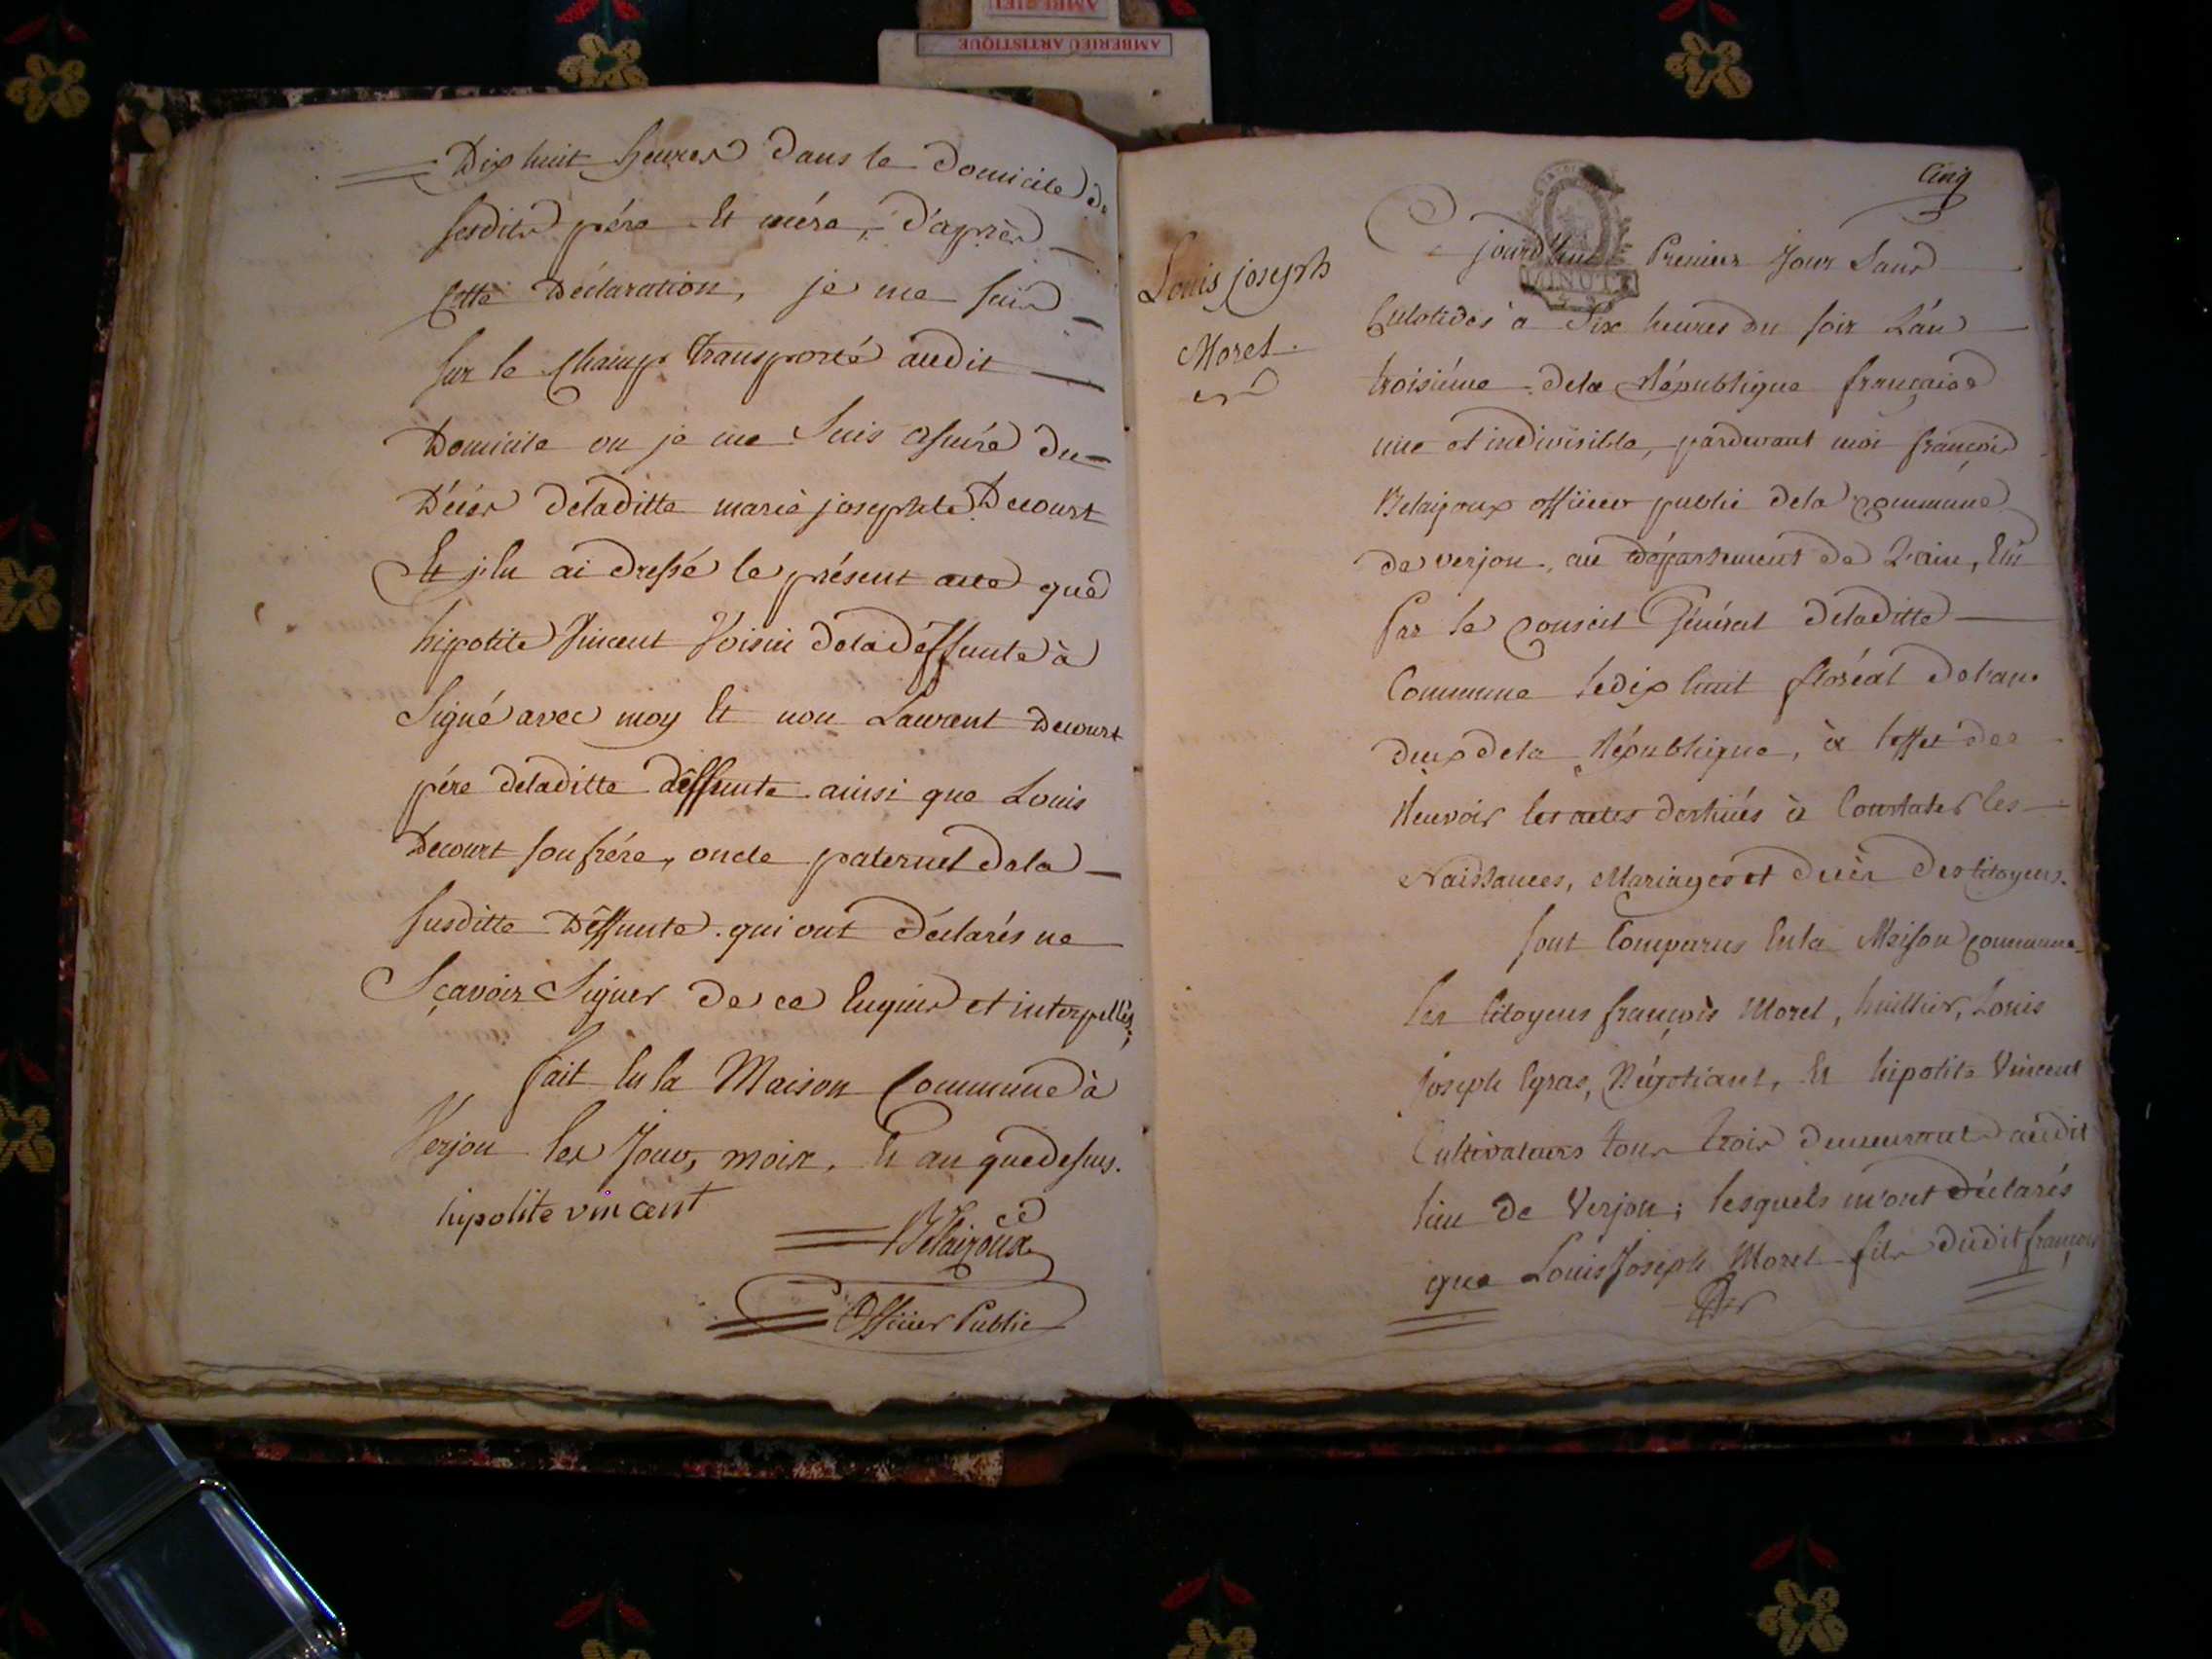 AMBERIEU
AMBERIEU ARTISTIQUE
Dix huit heures dans le domicile de
sesdits pére et mére, d'après
cette Déclaration, je me suis
sur le champ transporté audit
Domicile ou je me suis assuré du
Décès deladitte marie josephte Decourt
Et j'en ai dressé le présent acte que
hipolite Vincent Voisin deladeffunte à
Signé avec moy Et non Laurent Decourt
pére deladitte deffunte ainsi que Louis
Decourt son frére, oncle paternel dela
susditte Deffunte qui ont déclarés ne
Sçavoir Signer de ce Enquis et interpellés,
fait En la Maison Commune à
Verjon les Jour, mois, Et an quedessus.
hipolite vincent
Belaizoux
Officier Public
Cinq
Louis joseph
Morel
Cejourd'hui Premier Jour Sans
Culotides à Six heures du soir L'an
troisiéme dela République française
une et indivisible, pardevant moi françois
Belaizoux officier public dela Commune
de verjon, au département de L'ain, Elu
Par le Conseil Général deladitte
Commune le dix huit floréal de l'an
deux dela République, à l'effet de
Recevoir les actes destinés à Constater les
Naissances, Mariages et décès des Citoyens.
sont Comparus En la Maison commune
les Citoyens françois Morel, huillier, Louis
joseph Egraz, Négotiant, Et hipolite Vincent
Cultivateurs tous trois demeurant audit
lieu de Verjon; lesquels m'ont déclarés
que Louis Joseph Morel fils dudit françois